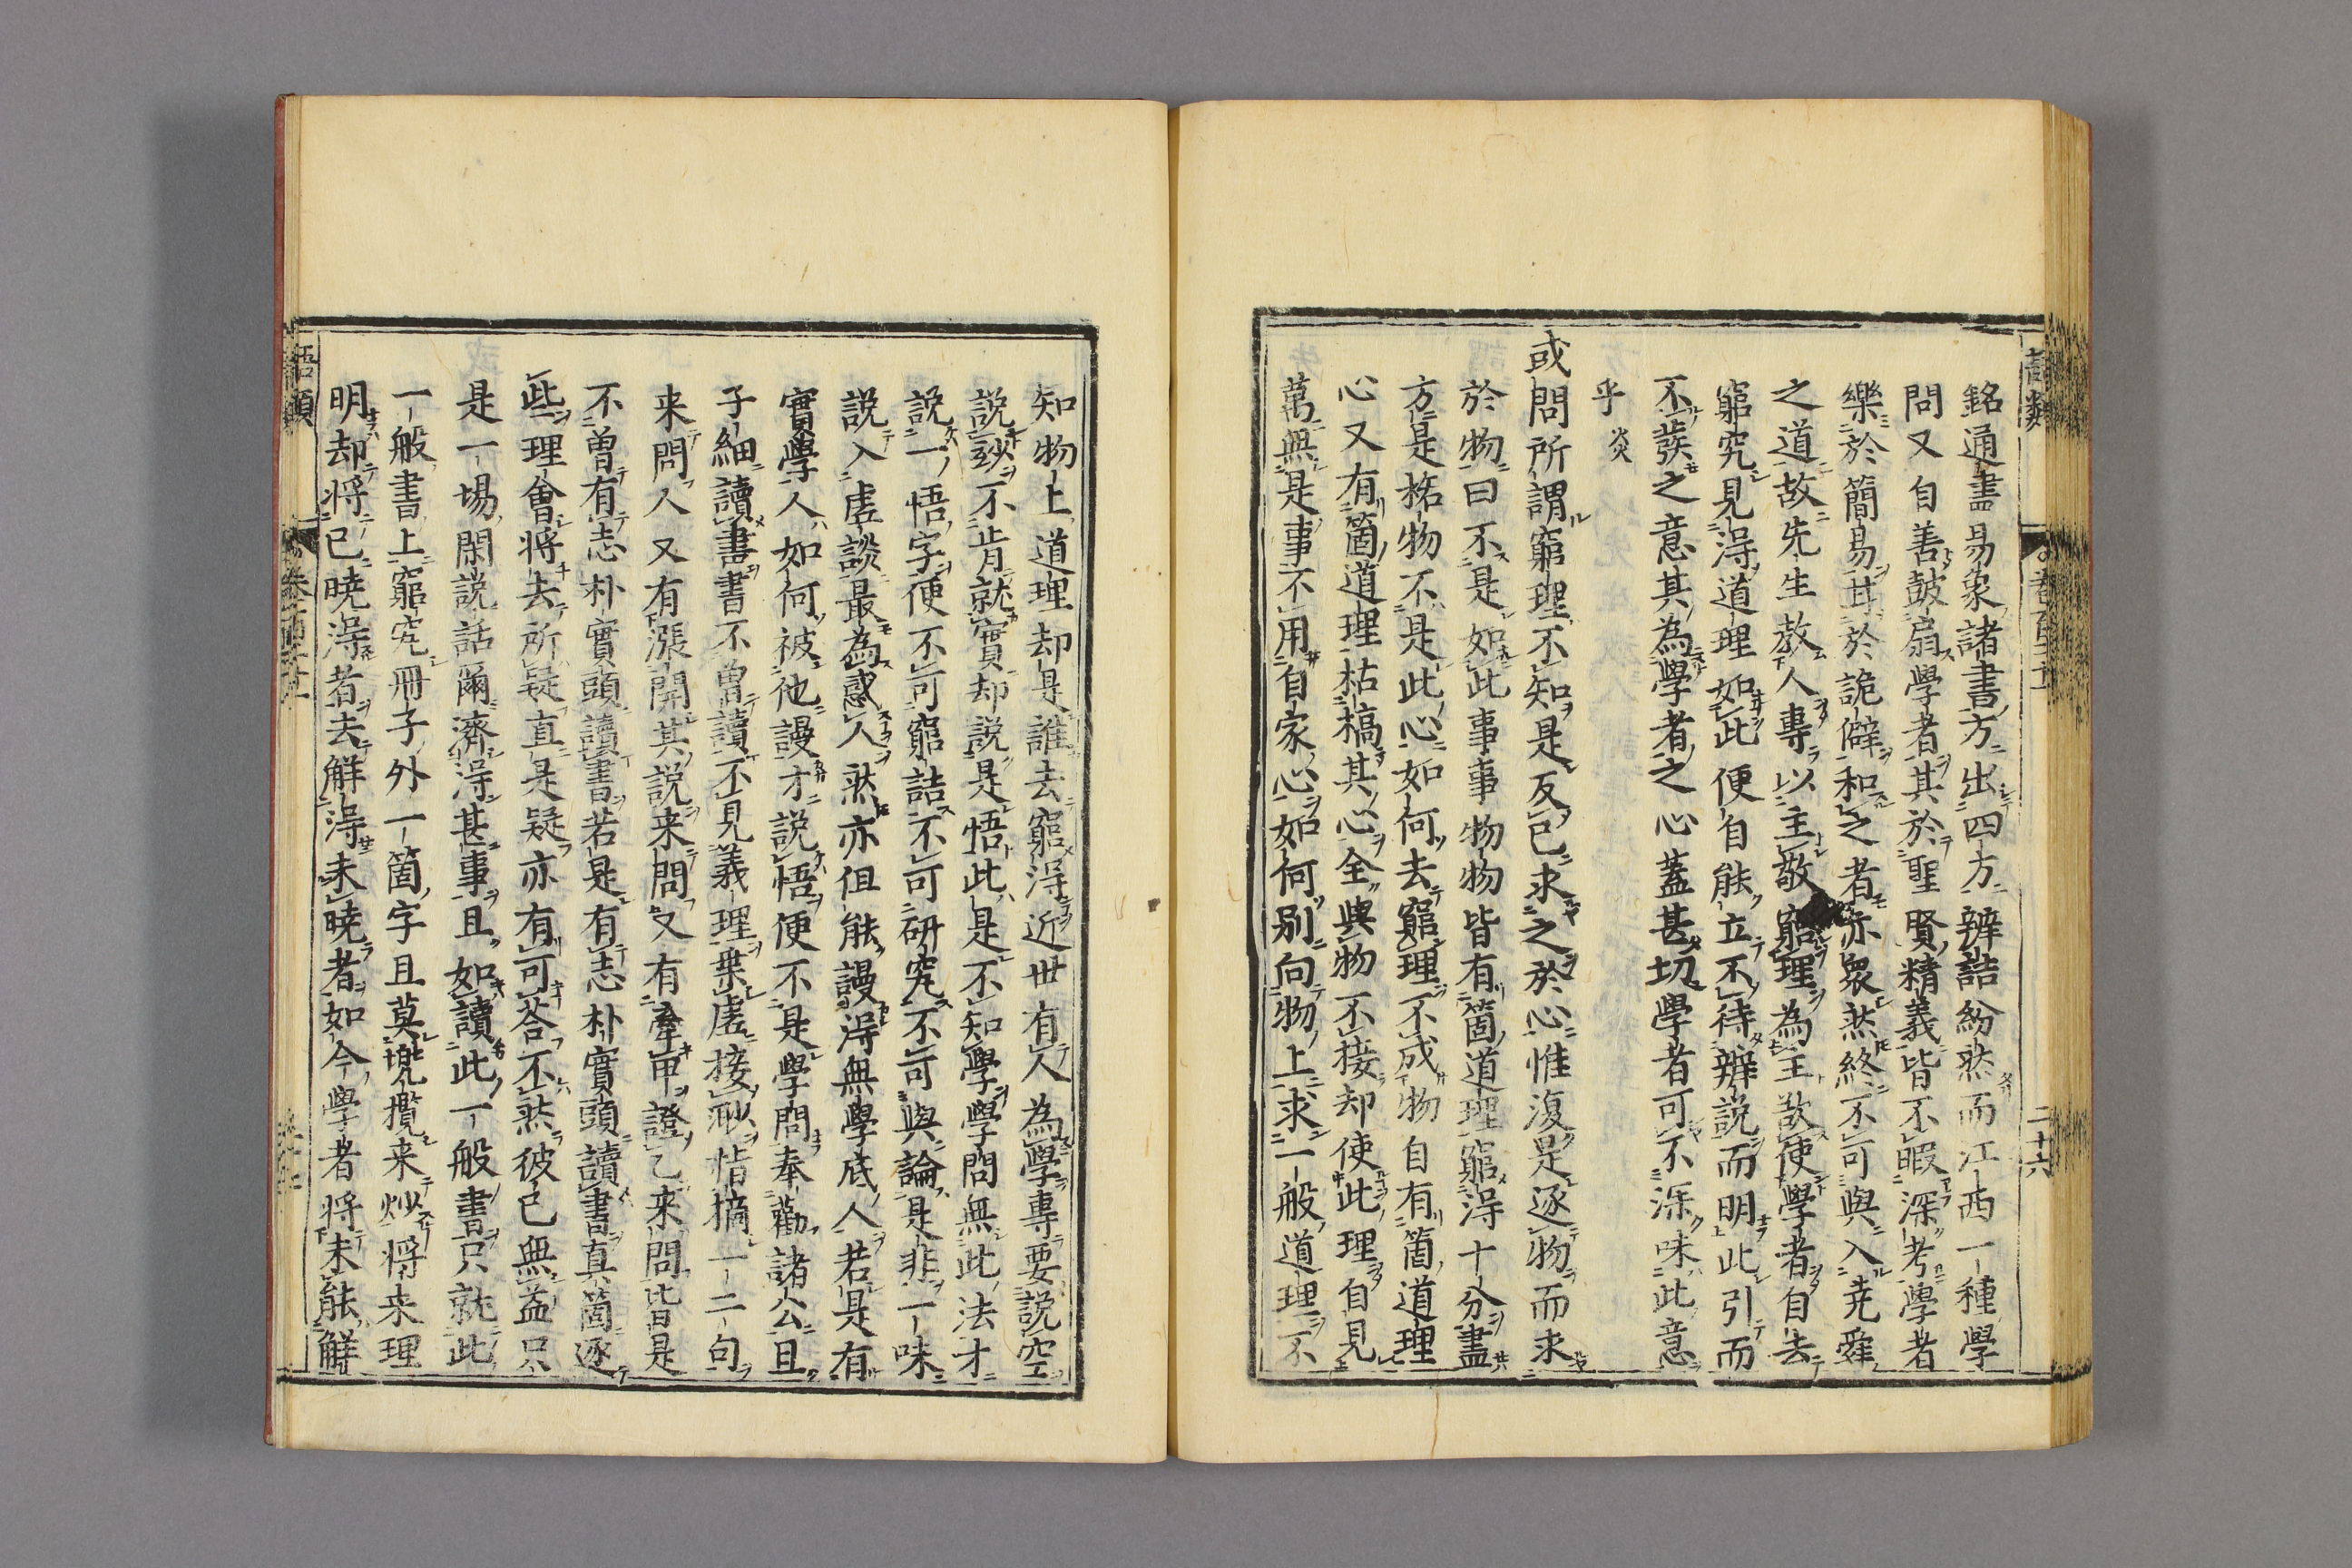 銘通書易象諸書方出四方辨詰紛然而江西一種學
問又自善鼓扇學者其於聖賢精義皆不暇深考學者
樂於簡易甘於詭僻和之者亦衆然終不可與入堯舜
之道故先生教人專以主敬窮理為主欲使學者自去
窮究見得道理如此便自能立不待辨説而明此引而
不發之意其為學者之心蓋甚切學者可不深味此意
乎 炎
或問所謂窮理不知是反己求之於心惟復是逐物而求
於物曰不是如此事事物物皆有箇道理窮得十分盡
方是格物不是此心如何去窮理不成物自有箇道理
心又有箇道理枯槁其心全與物不接却使此理自見
萬無是事不用自家心如何别向物上求一般道理不
知物上道理却是誰去窮得近世有人為學專要説空
説玅不肯就實却説是悟此是不知學學問無此法才
説一悟字便不可窮詰不可研究不可與論是非一味
説入虚談最為惑人然亦但能謾得無學底人若是有
實學人如何被他謾才説悟便不是學問奉勸諸公且
子細讀書書不曾讀不見義理乗虚接秡指摘一二句
来問人又有漲開其説来問又有牽甲證乙来問皆是
不曾有志朴實頭讀書若是有志朴實頭讀書真箇逐
些理會將去所疑直是疑亦有可答不然彼已無益只
是一場閑説話爾濟得甚事且如讀此一般書只就此
一般書上窮究冊子外一箇字且莫兠攬来炒將来理
明却將已曉得者去解得未曉者如今學者將未能解
語類
卷百二十一
二十六
語類